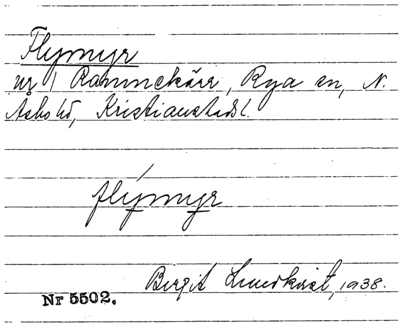 Flymyr
nr 1 Rammekärr, Rya sn, N.
Åsbo hd, Kristianstads l.
flýmyr
Birgit Lundkvist, 1938.
Nr 5502.